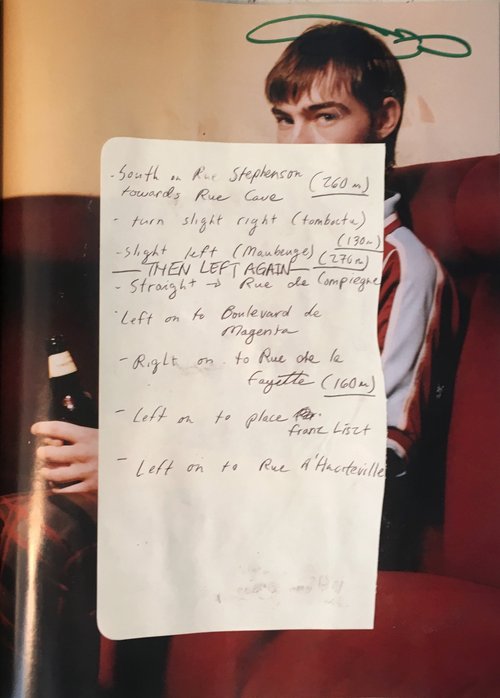 - South on Rue Stephenson
towards Rue Cave (260 m)
- turn slight right (tomboctu)
(130m)
- Slight left (Maubeuge) (270m)
— THEN LEFT AGAIN —
- Straight → Rue de Compiegne
- Left on to Boulevard de
Magenta
- Right on to Rue de la
Fayette (160 m)
- Left on to place
franz Liszt
- Left on to Rue d'Hauteville